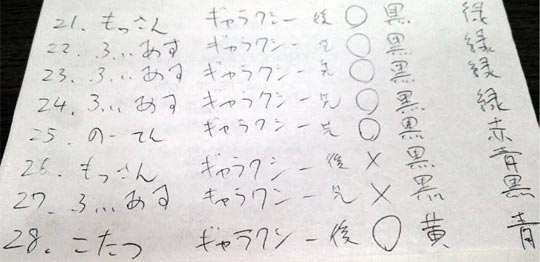 21. もっさん ギャラクシー 後 ○ 黒 緑
22. ふぃあす ギャラクシー 先 ○ 黒 緑
23. ふぃあす ギャラクシー 先 ○ 黒 緑
24. ふぃあす ギャラクシー 先 ○ 黒 緑
25. のーてん ギャラクシー 先 ○ 黒 赤
26. もっさん ギャラクシー 後 × 黒 青
27. ふぃあす ギャラクシー 先 × 黒 黒
28. こたつ ギャラクシー 後 ○ 黄 青